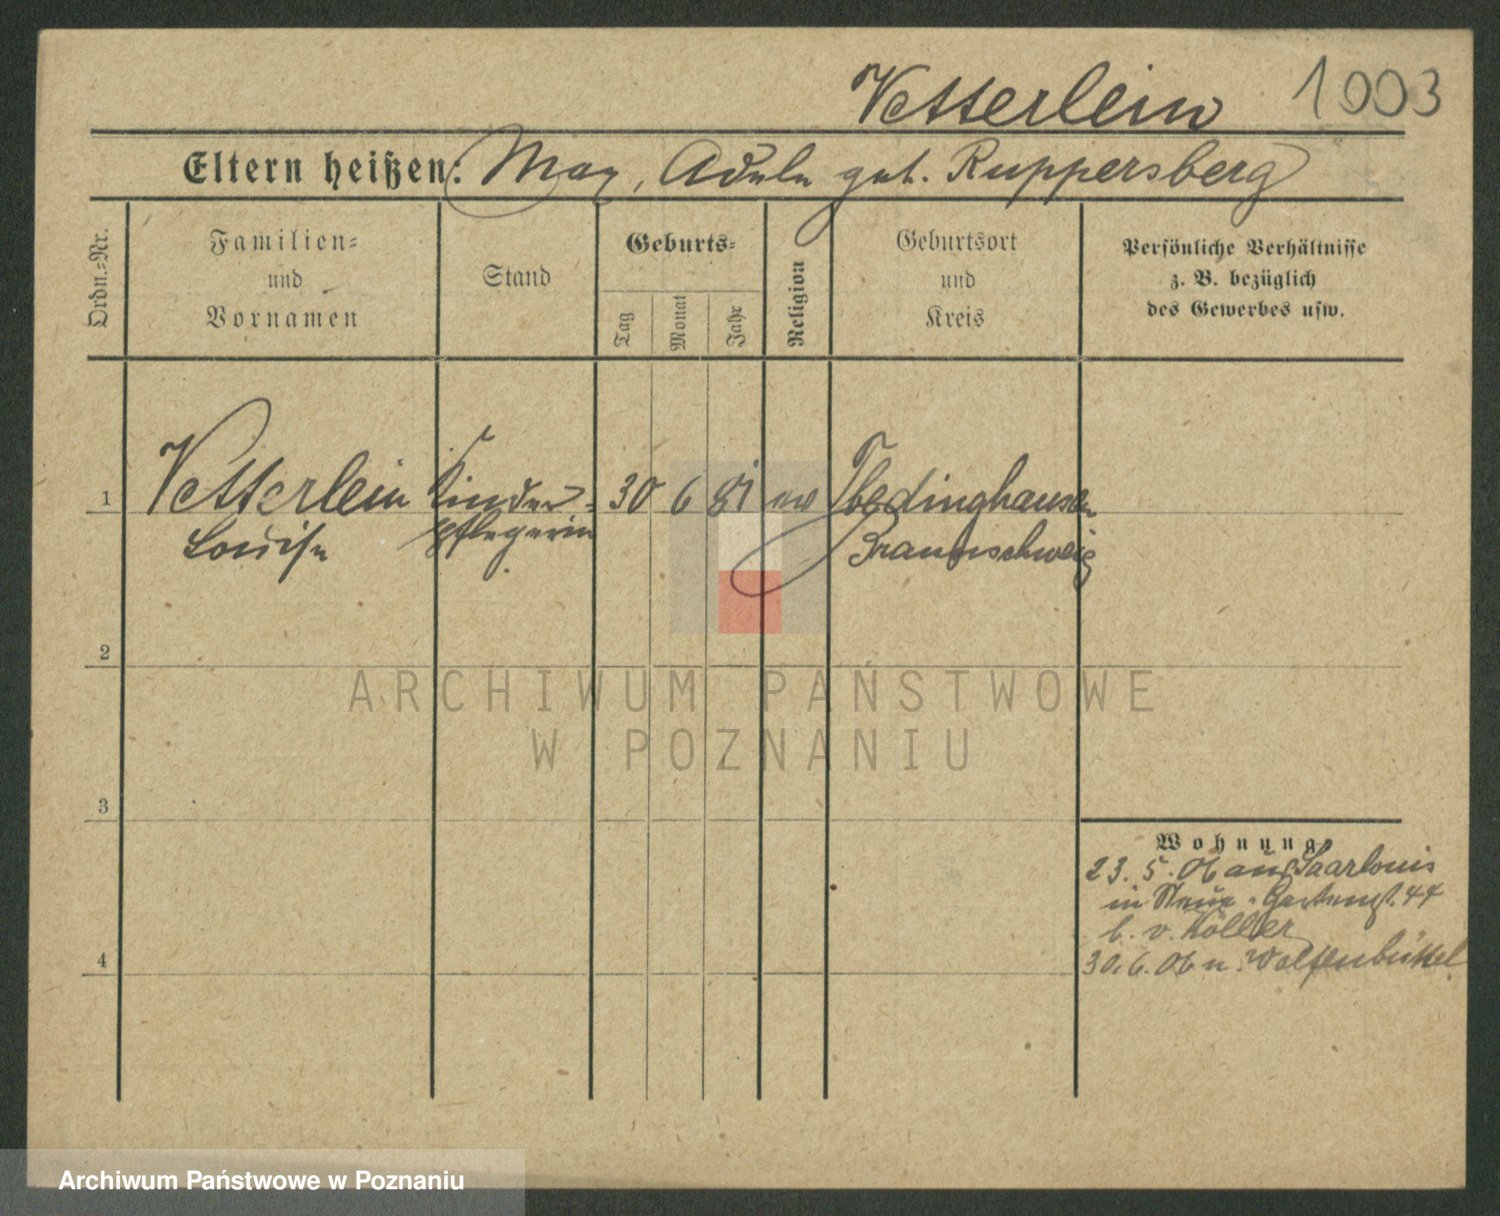 Vetterlein 1003
Eltern heißen: Max, Adele geb. Ruppersberg
Ordn.-Nr.
Familien-
und
Vornamen
Stand
Geburts-
Tag
Monat
Jahr
Religion
Geburtsort
und
Kreis
Persönliche Verhältnisse
z. B. bezüglich
des Gewerbes usw.
1 Vetterlein Kinder- 30 6 81 ev Thedinghausen
Louise pflegerin Braunschweig
2
3
4
Wohnung
23. 5. 06 aus Saarlouis
in Neue-Gartenst. 44
b. v. Köller
30. 6. 06 n. Wolfenbüttel
ARCHIWUM PAŃSTWOWE
W POZNANIU
Archiwum Państwowe w Poznaniu